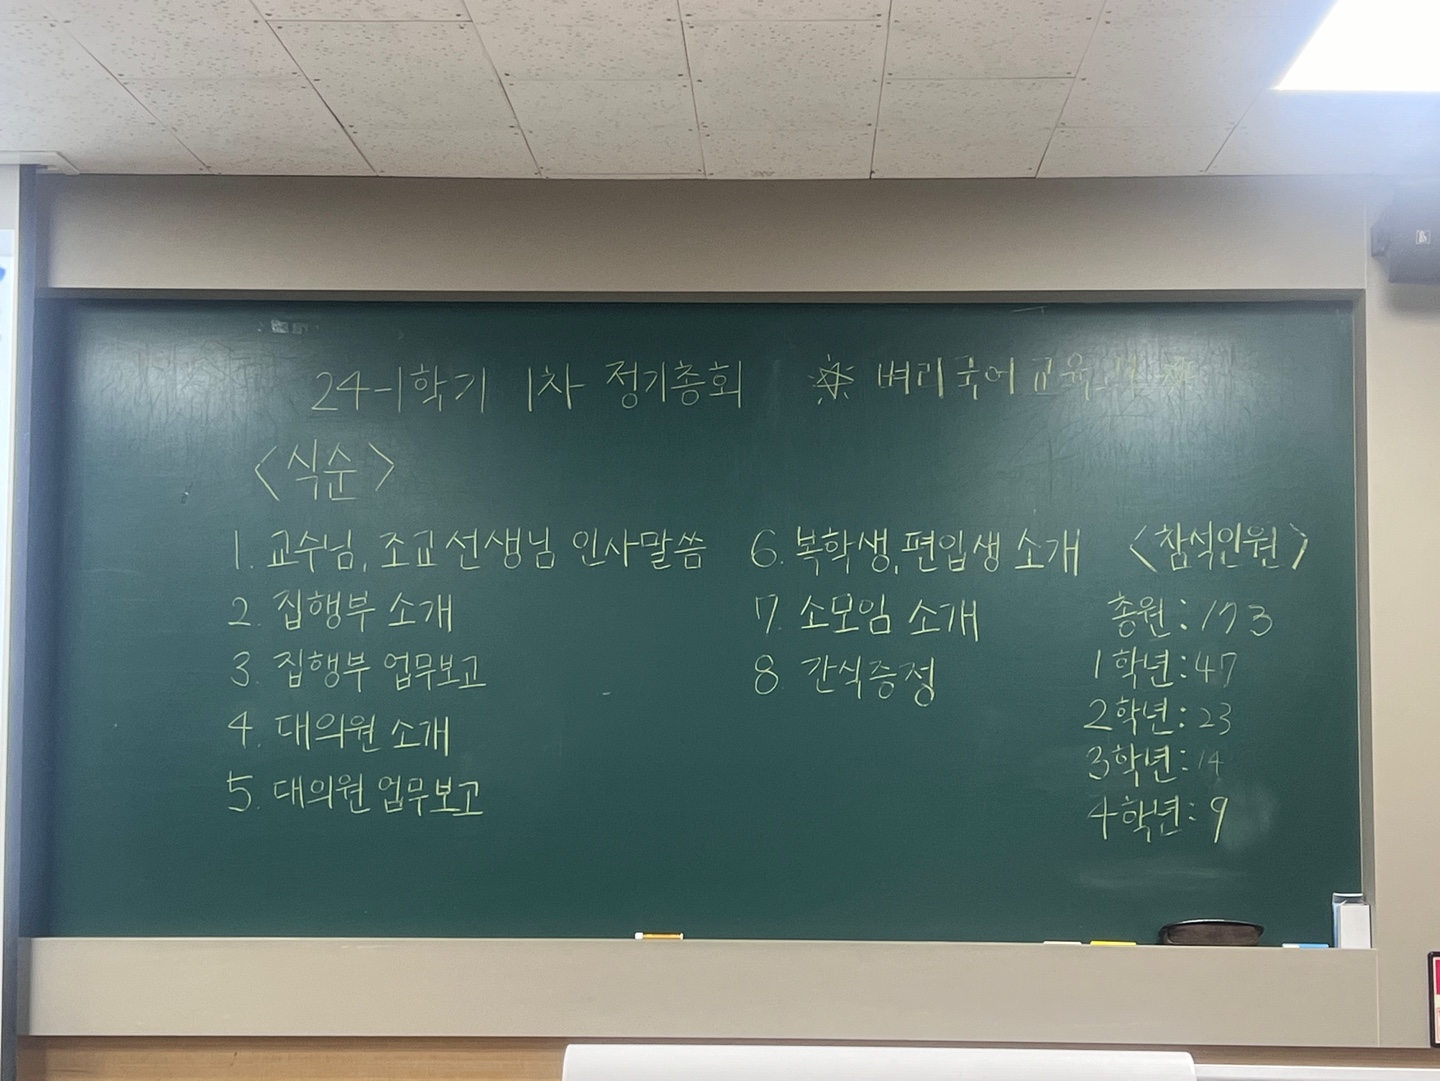 24-1학기 1차 정기총회 ☆ 벼리국어교육과 ☆
<식순>
1. 교수님, 조교선생님 인사말씀
2. 집행부 소개
3. 집행부 업무보고
4. 대의원 소개
5. 대의원 업무보고
6. 복학생, 편입생 소개
7. 소모임 소개
8. 간식증정
<참석인원>
총원: 173
1학년: 47
2학년: 23
3학년: 14
4학년: 9